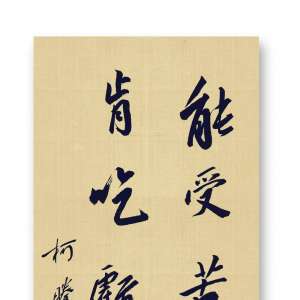 能受苦
肯吃虧
柯